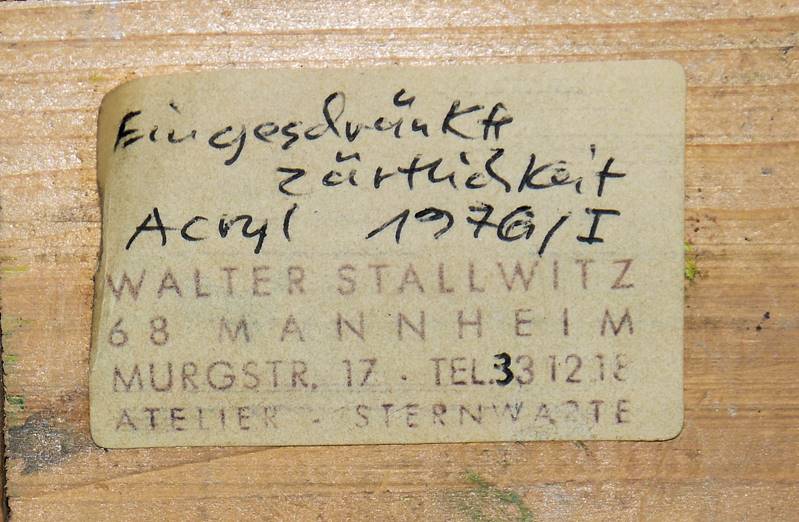 Eingeschränkte
Zärtlichkeit
Acryl 1976/I
WALTER STALLWITZ
68 MANNHEIM
MURGSTR. 17 - TEL. 33 12 18
ATELIER - STERNWARTE